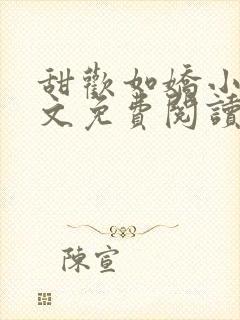 甜歡如嬌小
文免費閱讀
陳宣